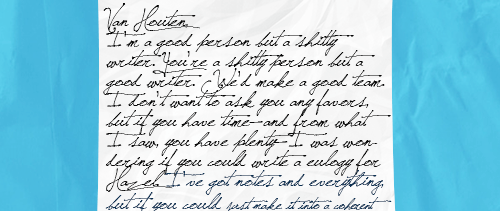 Van Houten,
I'm a good person but a shitty
writer. You're a shitty person but a
good writer. We'd make a good team.
I don't want to ask you any favors,
but if you have time—and from what
I saw, you have plenty—I was won-
dering if you could write a eulogy for
Hazel. I've got notes and everything,
but if you could just make it into a coherent